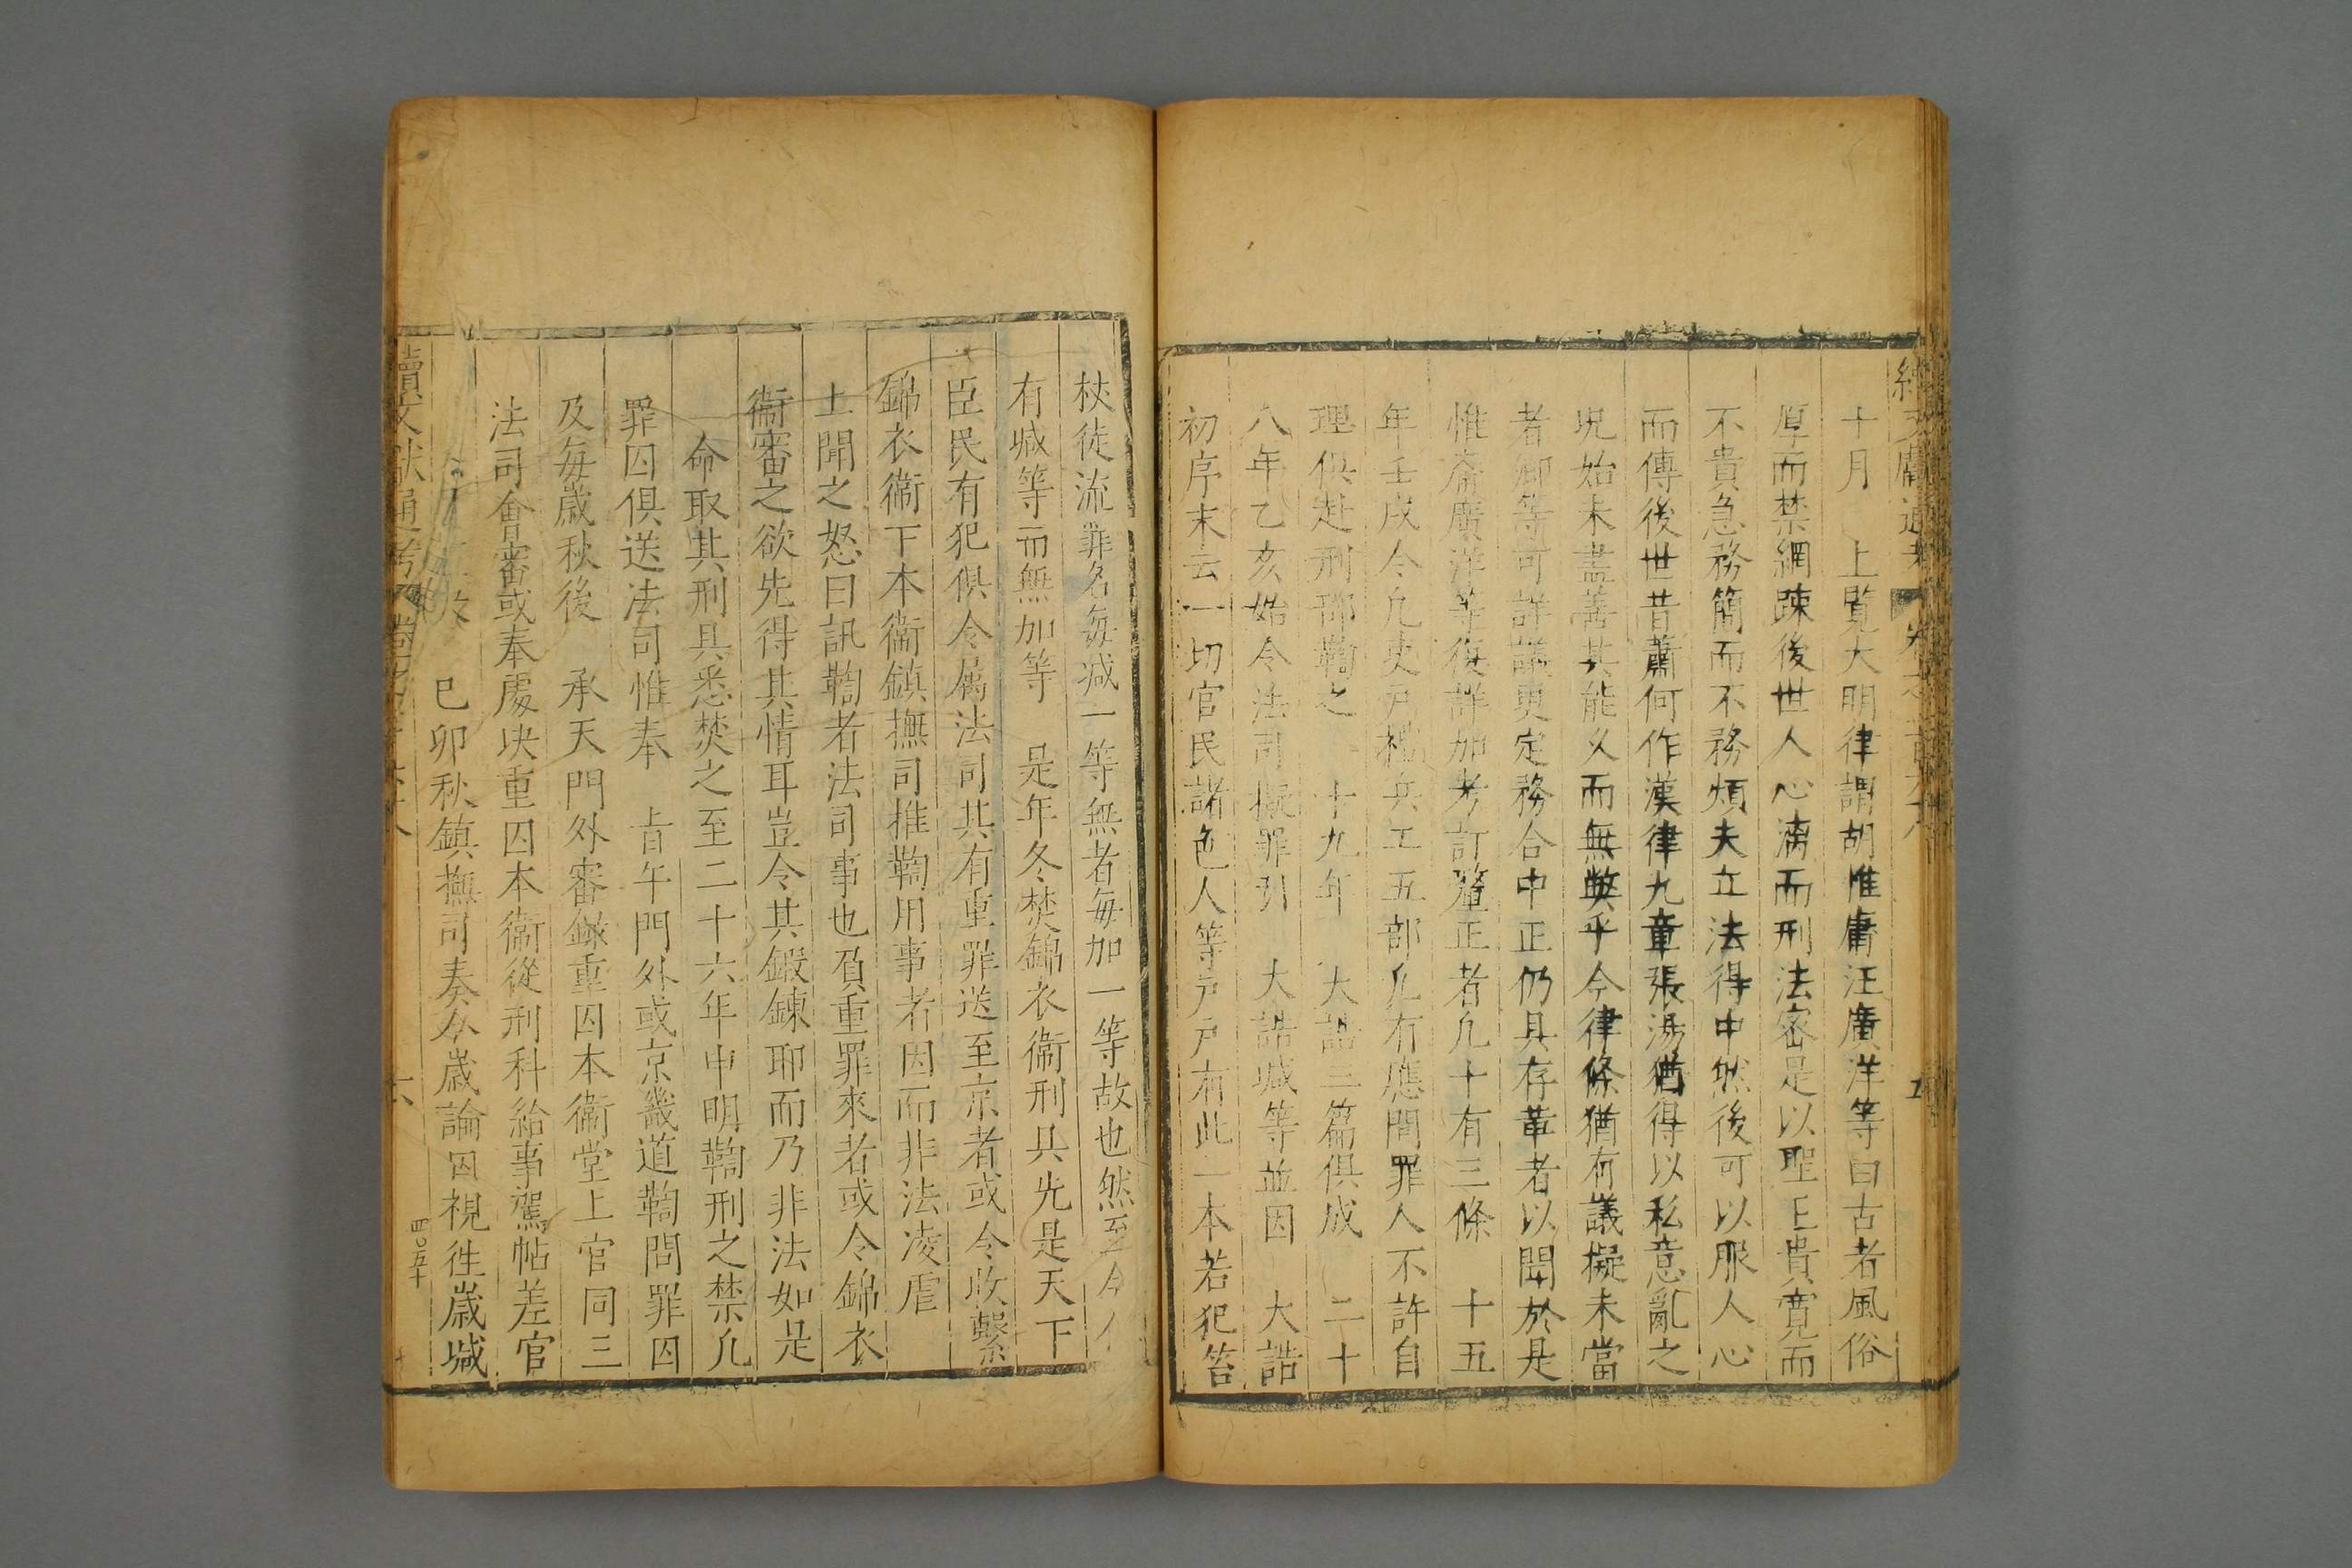 十月 上覧大明律謂胡惟庸汪廣洋等曰古者風俗
厚而禁網踈後世人心漓而刑法密是以聖王貴寛而
不貴急務簡而不務煩夫立法得中然後可以服人心
而傳後世昔蕭何作漢律九章張湯猶得以私意亂之
况始未盡善其能乂而無獘乎今律條猶有議擬未當
者卿等可詳議更定務合中正仍具存革者以聞於是
惟庸廣洋等復詳加考訂釐正者凢十有三條 十五
年壬戌令凢吏戸禮兵工五部凢有應問罪人不許自
理俱赴刑部鞫之 十九年 大誥三篇俱成 二十
八年乙亥始令法司擬罪引 大誥减等並因 大誥
初序末云一切官民諸色人等戸戸有此一本若犯笞
杖徒流罪名每减一等無者每加一等故也然至今
有减等而無加等 是年冬焚錦衣衞刑具先是天下
臣民有犯俱令属法司其有重罪送至京者或令收繫
錦衣衞下本衞鎮撫司推鞫用事者因而非法凌虐
上聞之怒曰訊鞫者法司事也頂重罪來者或令錦衣
衞審之欲先得其情耳豈令其鍛鍊耶而乃非法如是
命取其刑具悉焚之至二十六年申明鞫刑之禁凢
罪囚俱送法司惟奉 旨午門外或京畿道鞫問罪囚
及每歳秋後 承天門外審録重囚本衞堂上官同三
法司會審或奉處决重囚本衞從刑科給事駕帖差官
已卯秋鎮撫司奏今歳論囚視徃歳减
續文献通考
六
四〇五十